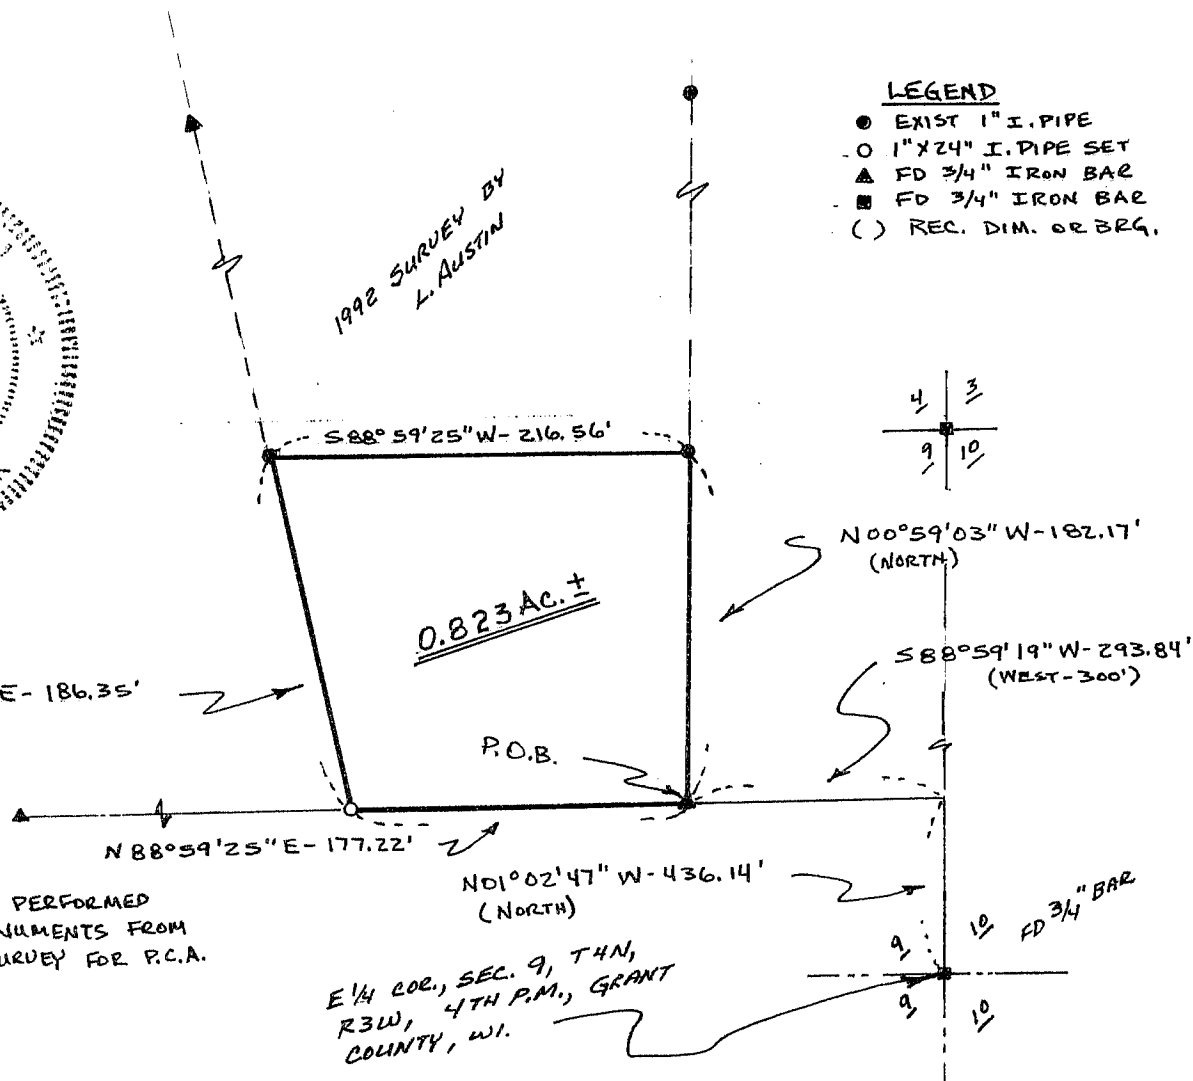 LEGEND
EXIST 1" I. PIPE
1" X 24" I. PIPE SET
FD 3/4" IRON BAR
FD 3/4" IRON BAR
( ) REC. DIM. OR BRG.
1992 SURVEY BY
L. AUSTIN
4 3
9 10
S88°59'25"W-216.56'
N00°59'03"W-182.17'
(NORTH)
0.823 AC.±
S88°59'19"W-293.84'
(WEST-300')
E-186.35'
P.O.B.
N88°59'25"E-177.22'
N01°02'47"W-436.14'
(NORTH)
PERFORMED
NUMENTS FROM
URVEY FOR P.C.A.
FD 3/4" BAR
9 10
9 10
E 1/4 COR., SEC. 9, T4N,
R3W, 4TH P.M., GRANT
COUNTY, WI.